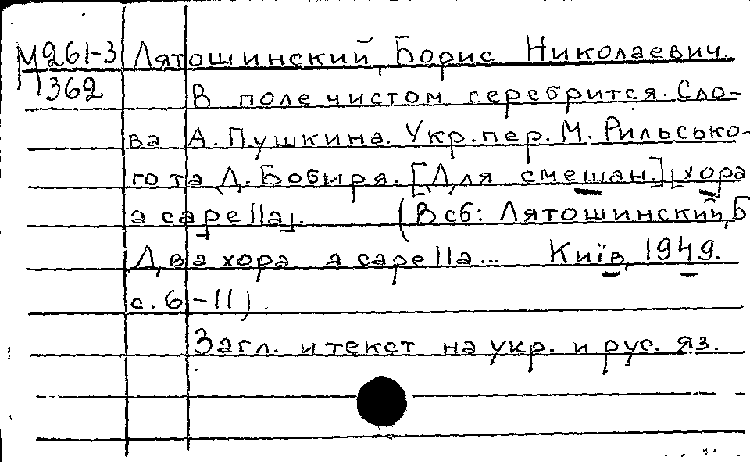 М261-3 Лятошинский, Борис Николаевич.
1362 В поле чистом серебрится. Сло-
ва А. Пушкина. Укр. пер. М. Рильсько-
го та Д. Бобиря. [Для смешан.] хора
a capella. (В сб: Лятошинский, Б
Два хора a capella... Київ, 1949.
с. 6-11)
Загл. и текст на укр. и рус. яз.